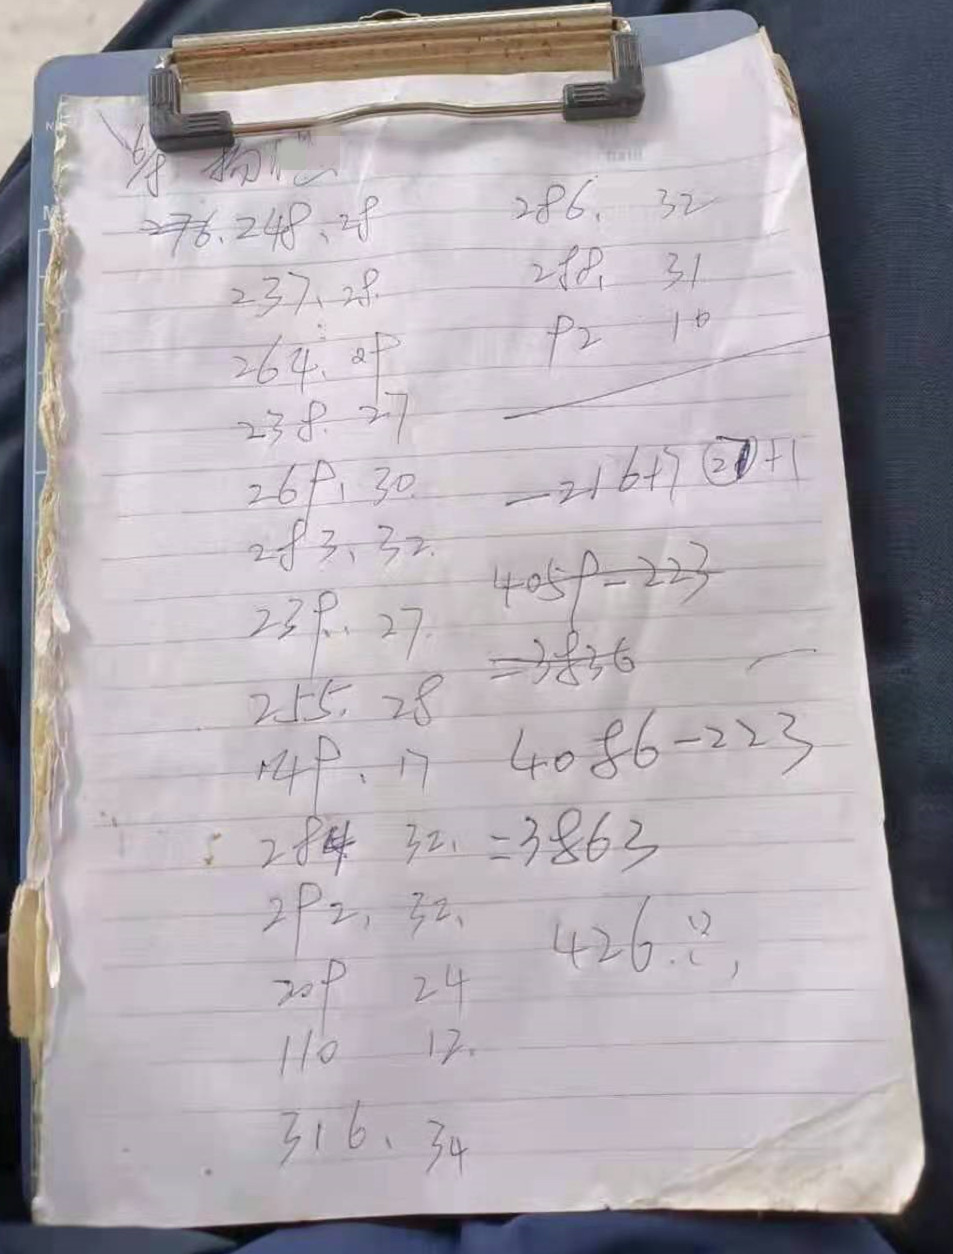 276. 248、28
237、28.
264、29
238. 27
269、30.
283、32.
239、27.
255. 28
149、17
284 32.
292、32.
209 24
110 12.
316、34
286、 32
288、 31
92 10
-216+7 27+1
4059-223
=3836
4086-223
=3863
426